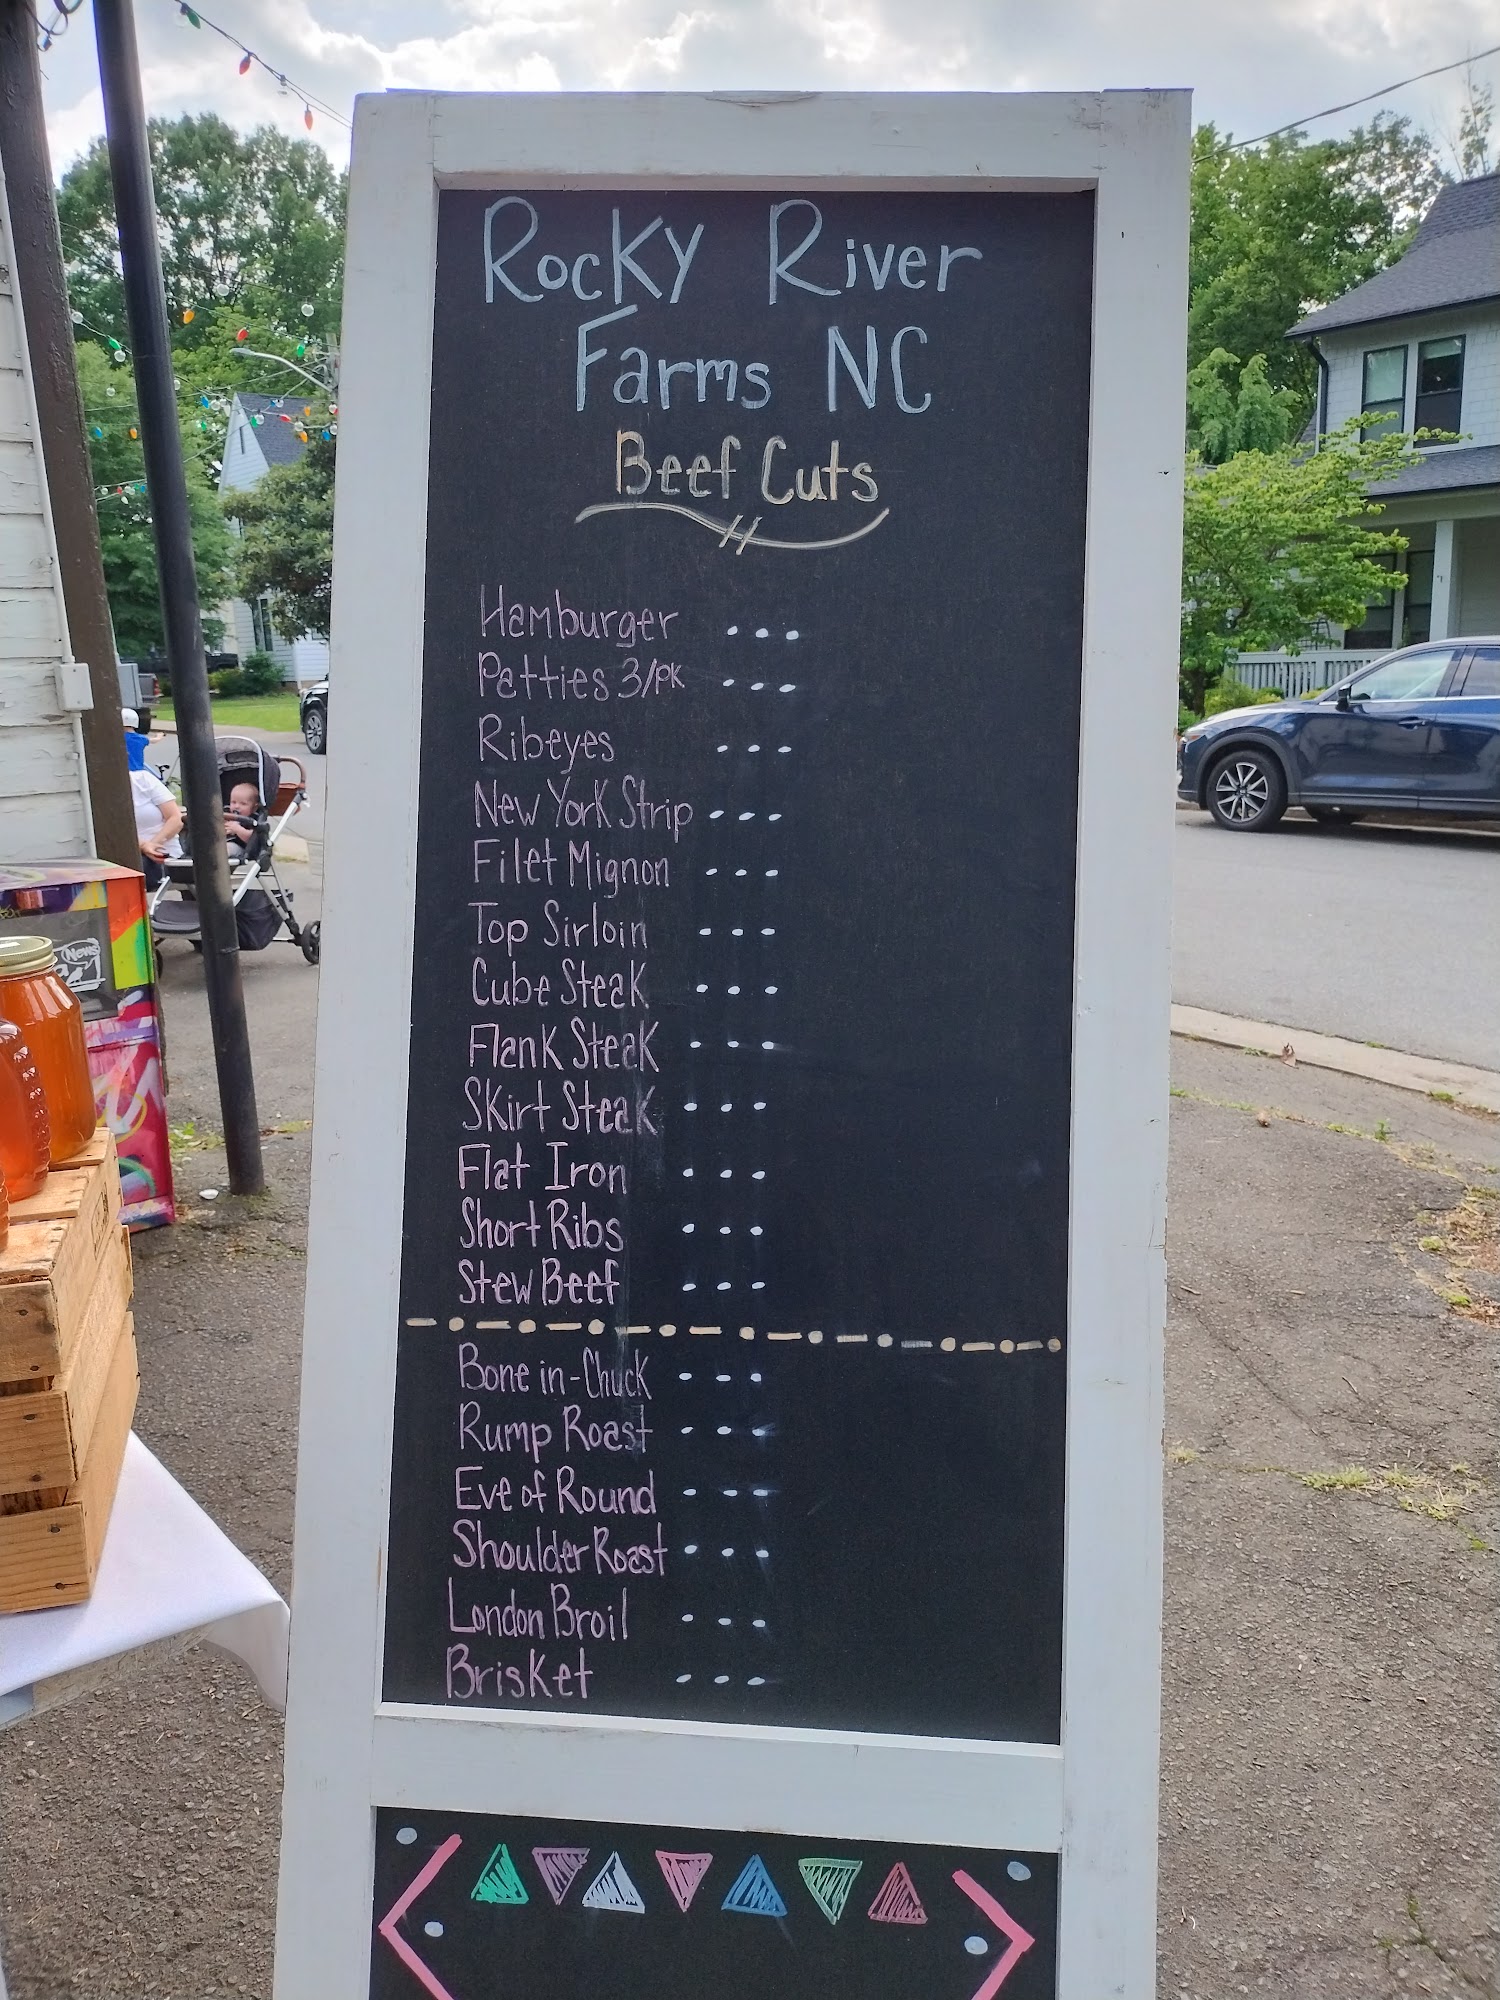 Rocky River
Farms NC
Beef Cuts
Hamburger ...
Patties 3/pk ...
Ribeyes ...
New York Strip ...
Filet Mignon ...
Top Sirloin ...
Cube Steak ...
Flank Steak ...
Skirt Steak ...
Flat Iron ...
Short Ribs ...
Stew Beef ...
Bone in-Chuck ...
Rump Roast ...
Eye of Round ...
Shoulder Roast ...
London Broil ...
Brisket ...
News